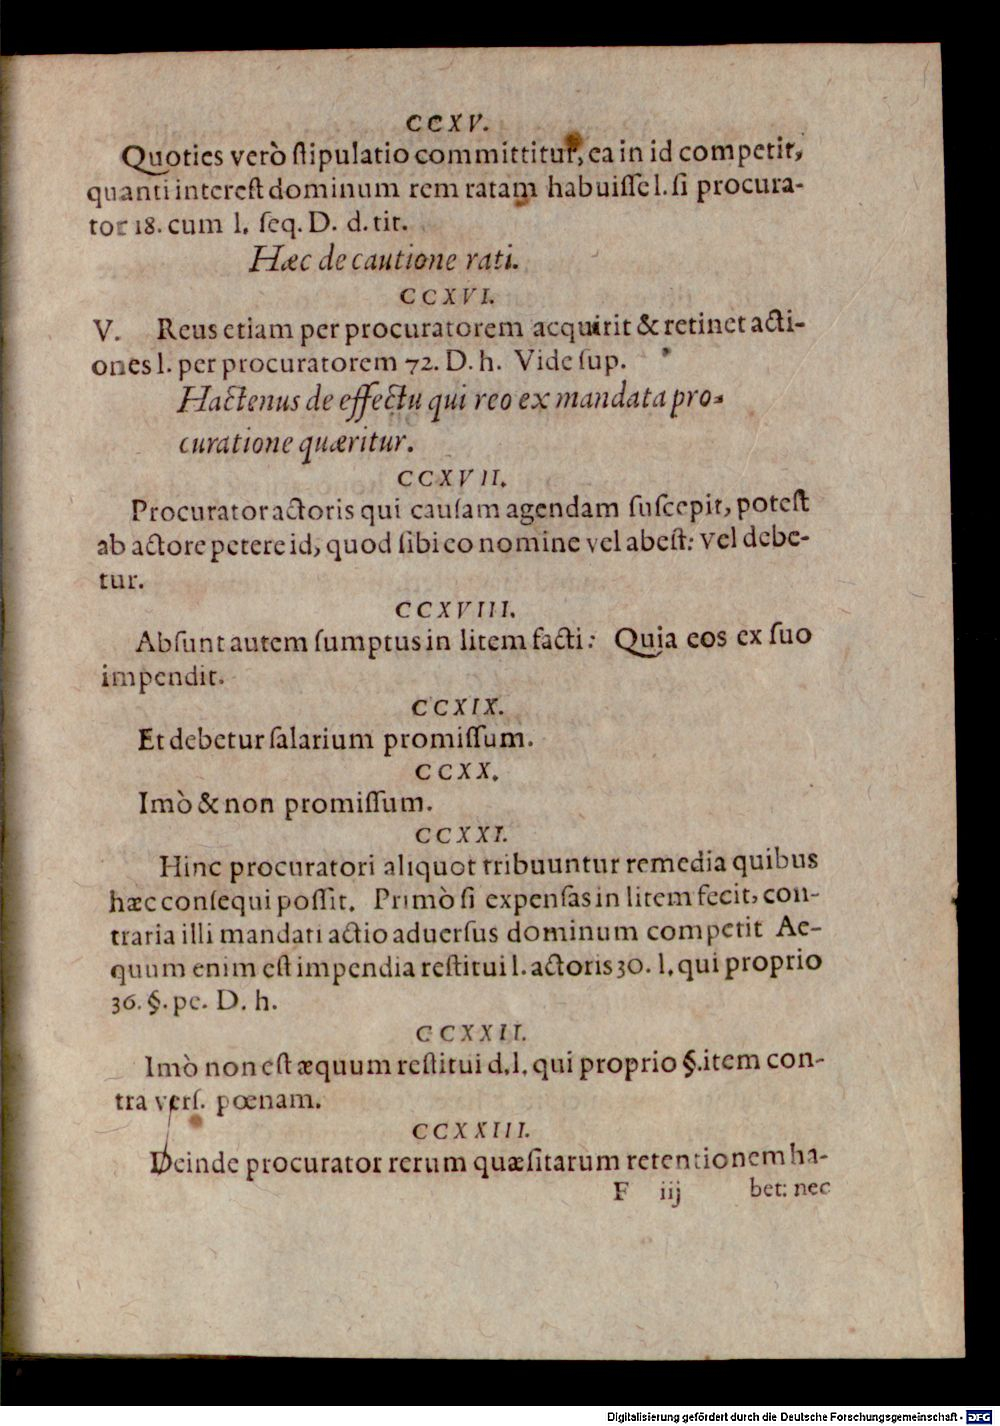 CCXV.
Quoties verò stipulatio committitur, ea in id competit,
quanti interest dominum rem ratam habuisse l. si procura-
tor 18. cum l. seq. D. d. tit.
Hæc de cautione rati.
CCXVI.
V. Reus etiam per procuratorem acquirit & retinet acti-
ones l. per procuratorem 72. D. h. Vide sup.
Hactenus de effectu qui reo ex mandata pro-
curatione quæritur.
CCXVII.
Procurator actoris qui causam agendam suscepit, potest
ab actore petere id, quod sibi eo nomine vel abest: vel debe-
tur.
CCXVIII.
Absunt autem sumptus in litem facti: Quia eos ex suo
impendit.
CCXIX.
Et debetur salarium promissum.
CCXX.
Imò & non promissum.
CCXXI.
Hinc procuratori aliquot tribuuntur remedia quibus
hæc consequi possit. Primò si expensas in litem fecit, con-
traria illi mandati actio aduersus dominum competit Ae-
quum enim est impendia restitui l. actoris 30. l. qui proprio
36. §. pe. D. h.
CCXXII.
Imò non est æquum restitui d. l. qui proprio §. item con-
tra vers. pœnam.
CCXXIII.
Deinde procurator rerum quæsitarum retentionem ha-
F iij bet: nec
Digitalisierung gefördert durch die Deutsche Forschungsgemeinschaft - DFG